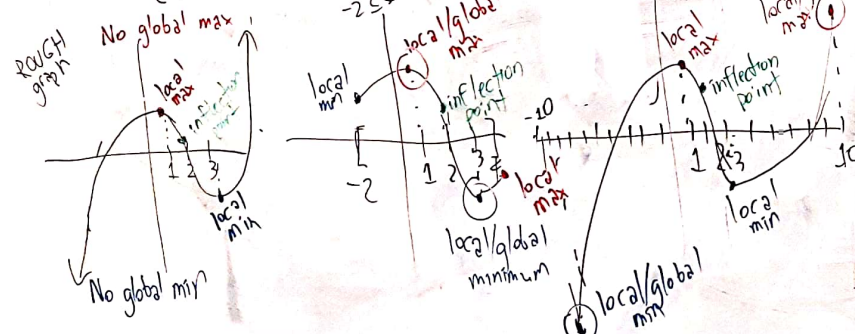 ROUGH
graph
No global max
local
max
inflection
point
1 2 3
local
min
No global min
-2≤
local/global
max
local
min
inflection
point
-2 1 2 3
local
max
local/global
minimum
local
max
inflection
point
-10 1 2 3 10
local
min
local/global
min
local
max